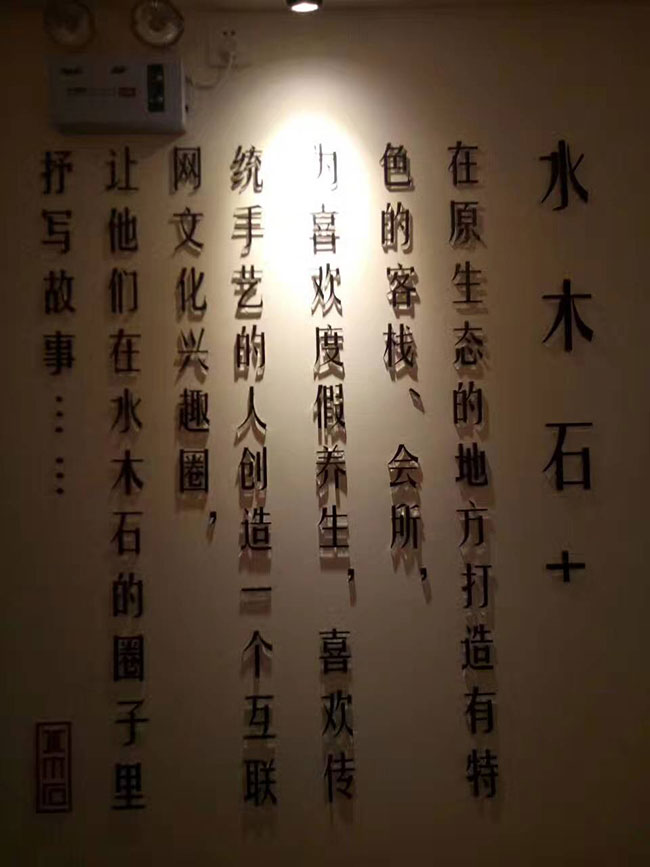 水木石+
在原生态的地方打造有特
色的客栈、会所,
为喜欢度假养生,喜欢传
统手艺的人创造一个互联
网文化兴趣圈,
让他们在水木石的圈子里
抒写故事……